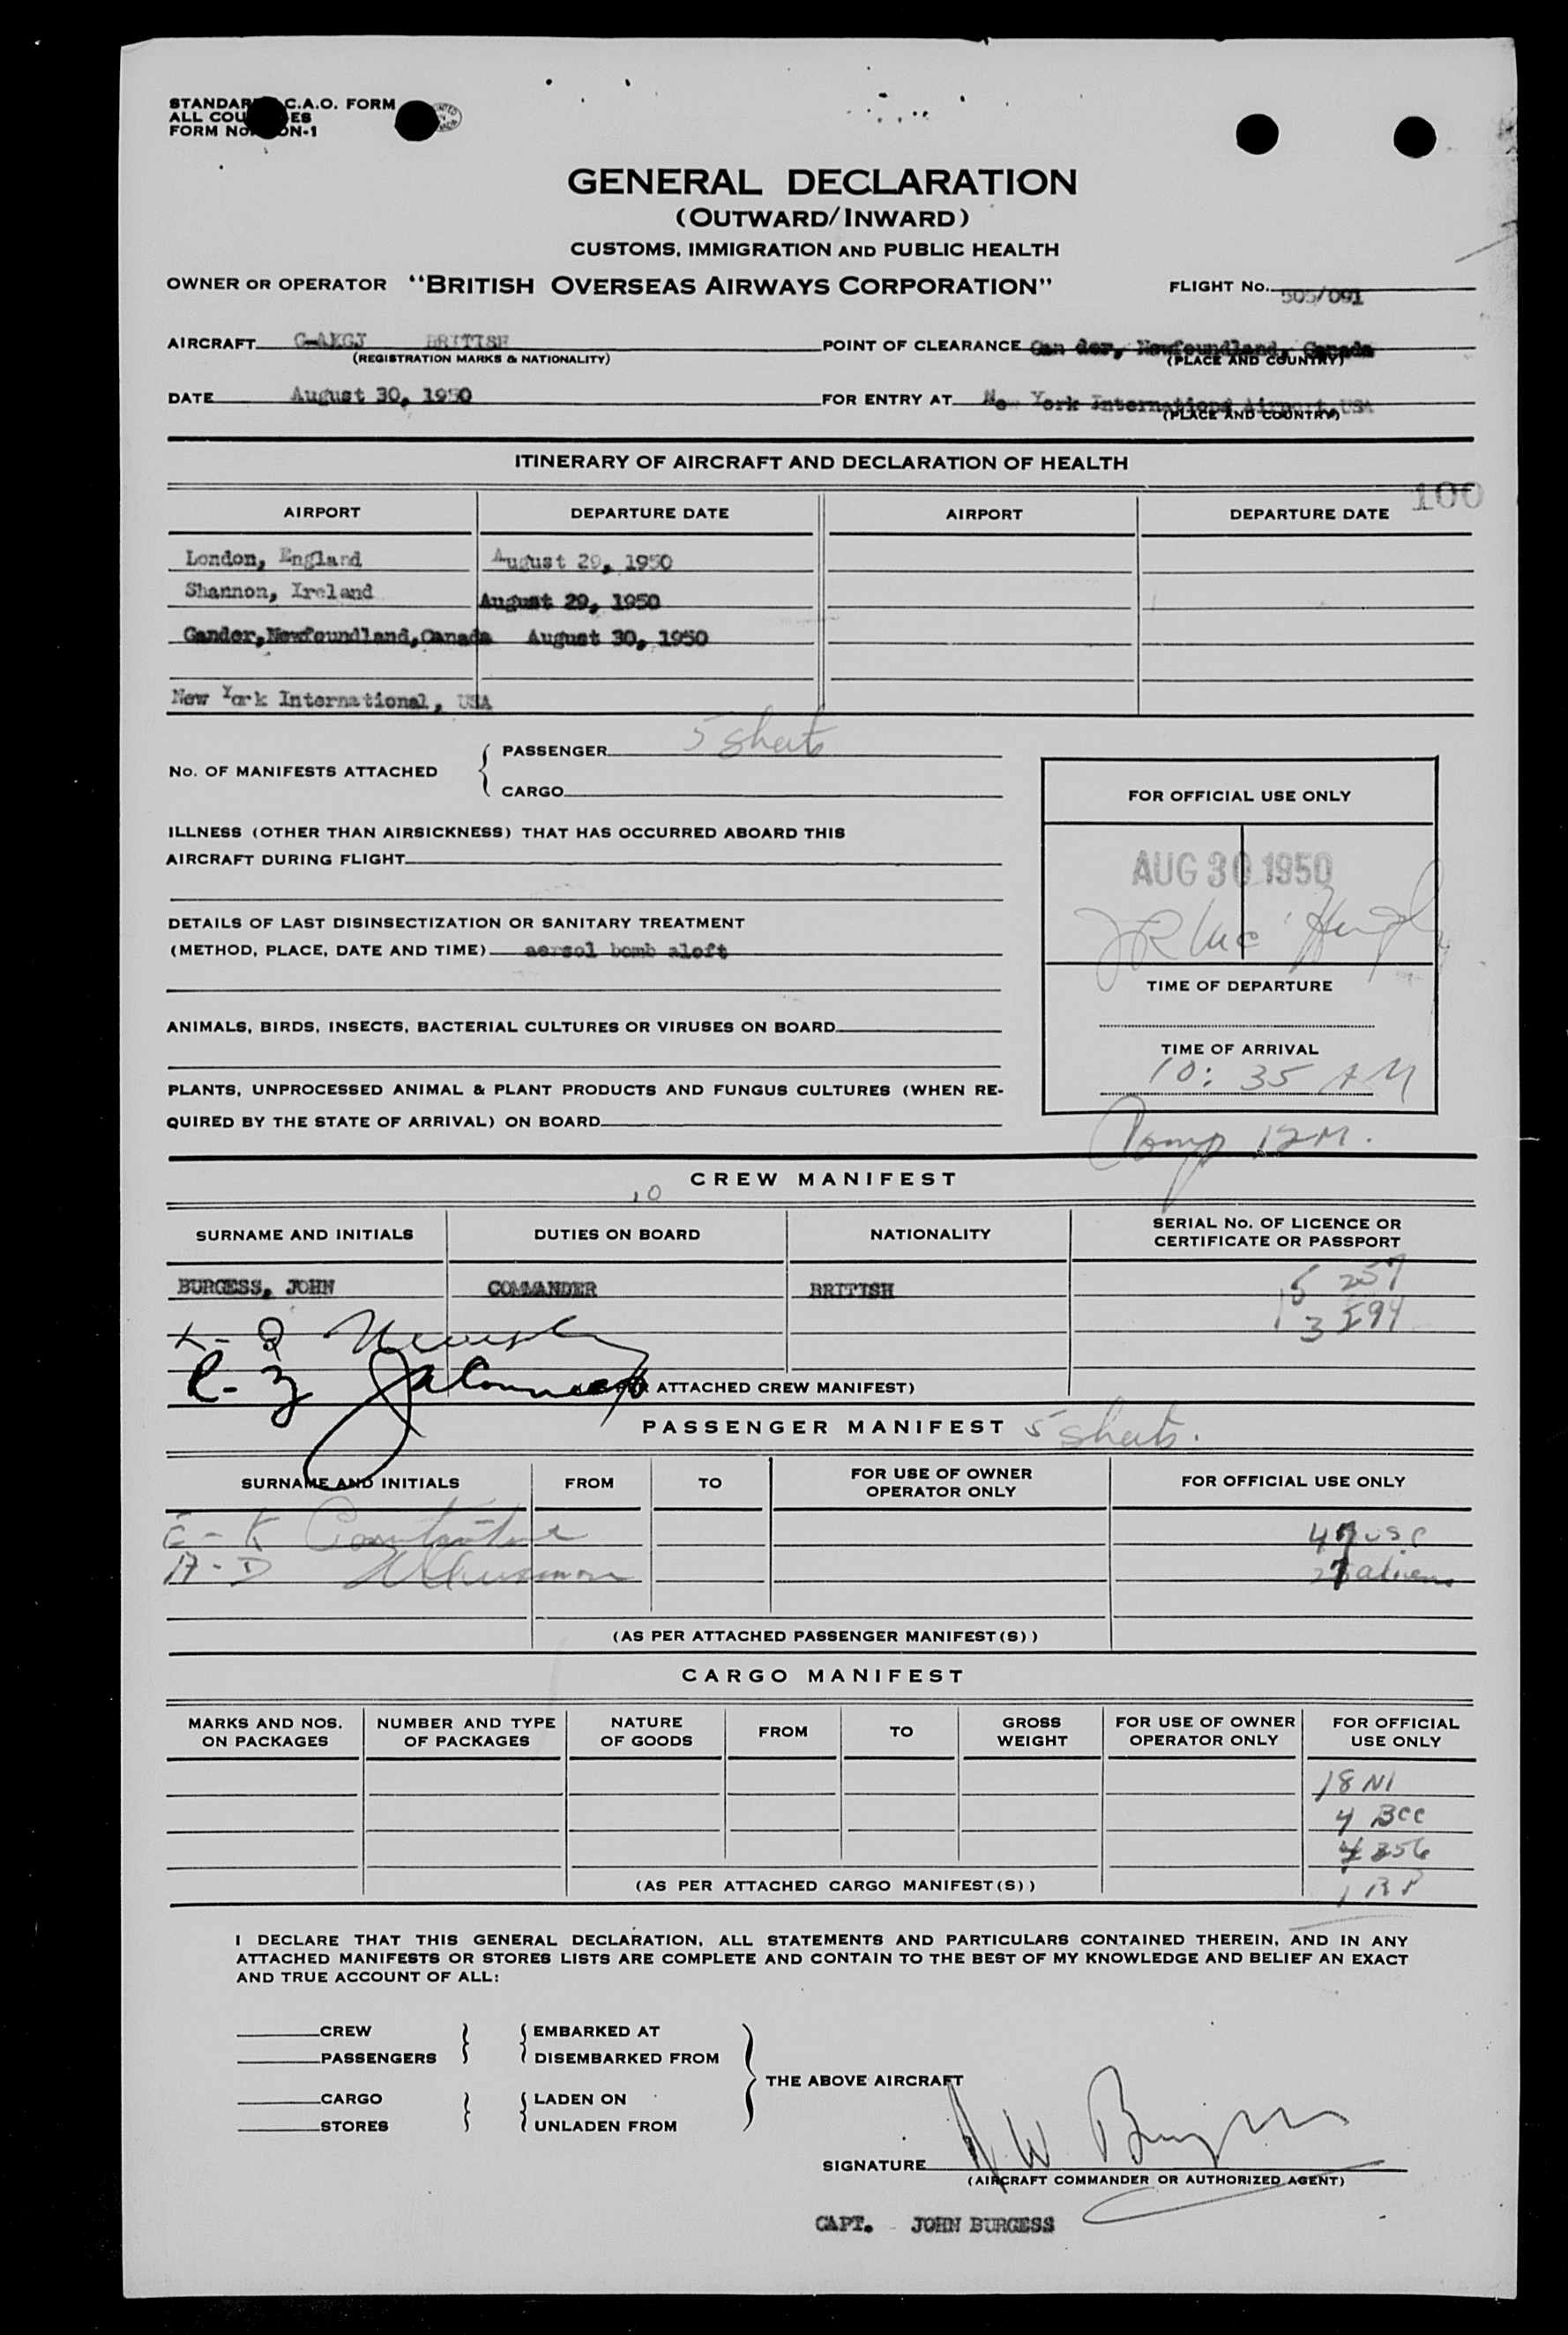 STANDAR C.A.O. FORM
ALL COU ES
FORM No. ON-1
GENERAL DECLARATION
(OUTWARD/INWARD)
CUSTOMS, IMMIGRATION AND PUBLIC HEALTH
OWNER OR OPERATOR "BRITISH OVERSEAS AIRWAYS CORPORATION" FLIGHT No. 505/091
AIRCRAFT G-AKGJ BRITISH POINT OF CLEARANCE Gan der, Newfoundland, Canada
(REGISTRATION MARKS & NATIONALITY) (PLACE AND COUNTRY)
DATE August 30, 1950 FOR ENTRY AT New York Internationa Airport, USA
(PLACE AND COUNTRY)
ITINERARY OF AIRCRAFT AND DECLARATION OF HEALTH
100
AIRPORT DEPARTURE DATE AIRPORT DEPARTURE DATE
London, England August 29, 1950
Shannon, Ireland August 29, 1950
Gander, Newfoundland, Canada August 30, 1950
New York International, USA
No. OF MANIFESTS ATTACHED
PASSENGER 5 sheets
CARGO
ILLNESS (OTHER THAN AIRSICKNESS) THAT HAS OCCURRED ABOARD THIS
AIRCRAFT DURING FLIGHT
DETAILS OF LAST DISINSECTIZATION OR SANITARY TREATMENT
(METHOD, PLACE, DATE AND TIME) aersol bomb aloft
ANIMALS, BIRDS, INSECTS, BACTERIAL CULTURES OR VIRUSES ON BOARD
PLANTS, UNPROCESSED ANIMAL & PLANT PRODUCTS AND FUNGUS CULTURES (WHEN RE-
QUIRED BY THE STATE OF ARRIVAL) ON BOARD
FOR OFFICIAL USE ONLY
AUG 30 1950
TIME OF DEPARTURE
TIME OF ARRIVAL
10:35 AM
Comp 12M.
CREW MANIFEST
10
SURNAME AND INITIALS DUTIES ON BOARD NATIONALITY SERIAL No. OF LICENCE OR
CERTIFICATE OR PASSPORT
BURGESS, JOHN COMMANDER BRITISH
L-Z
ATTACHED CREW MANIFEST)
PASSENGER MANIFEST 5 sheets.
SURNAME AND INITIALS FROM TO FOR USE OF OWNER
OPERATOR ONLY FOR OFFICIAL USE ONLY
E-K
A-D
aliens
(AS PER ATTACHED PASSENGER MANIFEST(S))
CARGO MANIFEST
MARKS AND NOS.
ON PACKAGES NUMBER AND TYPE
OF PACKAGES NATURE
OF GOODS FROM TO GROSS
WEIGHT FOR USE OF OWNER
OPERATOR ONLY FOR OFFICIAL
USE ONLY
18 NI
4 BCC
1 RP
(AS PER ATTACHED CARGO MANIFEST(S))
I DECLARE THAT THIS GENERAL DECLARATION, ALL STATEMENTS AND PARTICULARS CONTAINED THEREIN, AND IN ANY
ATTACHED MANIFESTS OR STORES LISTS ARE COMPLETE AND CONTAIN TO THE BEST OF MY KNOWLEDGE AND BELIEF AN EXACT
AND TRUE ACCOUNT OF ALL:
CREW EMBARKED AT
PASSENGERS DISEMBARKED FROM
THE ABOVE AIRCRAFT
CARGO LADEN ON
STORES UNLADEN FROM
SIGNATURE
(AIRCRAFT COMMANDER OR AUTHORIZED AGENT)
CAPT. JOHN BURGESS